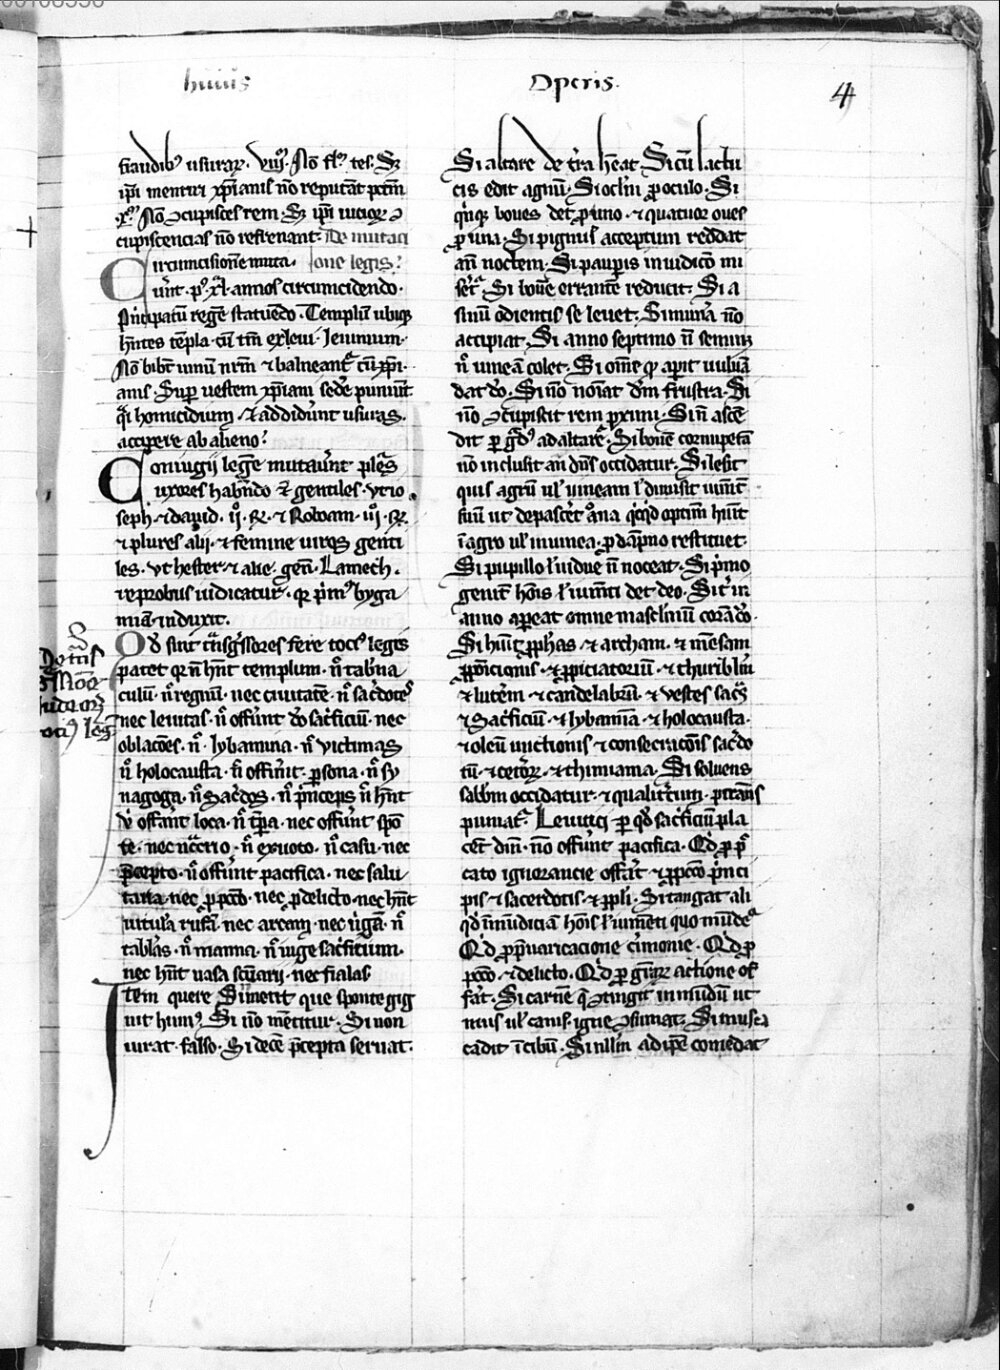 huius Operis.
4
fraudib⁹ usurar̃. viij. Nõ fl̃. tes. Sꝫ
ip̃i mentiri xp̃ianis nõ reputãt pctm̃
.x. Nõ ꝯcupisces rem. Sꝫ ip̃i
cupiscencias nõ refrenant. De mutaci
Circumcisionẽ muta. one legis.
ũnt. p⁹ .xl. annos circumcidendo.
Pñcipatũ regẽ statuẽdo. Templũ ubiqꝫ
hñtes tẽpla. cũ tm̃ ex leui. Ieiunium.
Nõ bibt̃ uinũ nrm̃ ⁊ balneant᷑ cũ xp̃i
anis. Sup̃ uestem xp̃iani sedẽ puniũt
q̃i homicidium. ⁊ addidũnt usuras.
accipere ab alieno.
Coniugij legẽ mutaũnt plẽs
uxores habñdo ⁊ gentiles. vt io
seph. ⁊ dauid. ij. R̃. ⁊ Roboam. iij. R̃.
⁊ plures alij. ⁊ femine uiros genti
les. vt hester. ⁊ alie. geñ. Lamech.
reprobus iudicatur. qꝛ p̃m⁹ byga
miã induxit.
Qd̃ sint tñsg̃ssores fere toci⁹ legis
patet qꝛ ñ hñt templum. ñ tab̃na
culũ. ñ regnũ. nec ciuitatẽ. ñ sac̃dotes
nec leuitas. ñ offũnt dõ sac̃ficiũ. nec
oblacões. ñ. lybamina. ñ victimas
ñ holocausta. ñ offũnt. ꝑsona. ñ sy
nagoga. ñ sac̃dos. ñ p̃nceps ñ hñt
vᷓ offãnt loca. ñ tp̃a. nec offũnt spõ
te. nec ñ ex uoto. ñ casu. nec
p̃cepto. ñ offũnt pacifica. nec salu
taria. nec ꝓ pctõ. nec ꝓ delicto. nec hñt
uitulã rufã. nec arcam. nec ũgã. ñ
tablãs. ñ manna. ñ iuge sac̃ficium.
nec hñt uasa sc̃uarij. nec fialas
Item quere Si metit que sponte gig
nit hum⁹. Si nõ mẽtitur. Si non
iurat falso. Si decẽ p̃cepta seruat.
Si altare de t̃ra hẽat Si cũ lactu
cis edit agnũ. Si oclm̃ ꝓ oculo. Si
q̃nqꝫ boues det ꝓ uno. ⁊ quatuor oues
ꝓ una. Si pignus acceptum reddat
añ noctem. Si paupis in iudicõ mi
set᷑. Si bouẽ errantẽ reducit. Si a
sinũ odientis se leuet. Si munã nõ
accipiat. Si anno septimo ñ semiñ
ñ uineã colet. Si om̃e qᷓ apit uuluã
dat dõ. Si nõ noĩat dm̃ frustra. Si
nõ ꝯcupiscit rem ꝓximi. Si ñ ascẽ
dit ꝑ g̃d⁹ ad altare. Si bouẽ cornupetã
nõ inclusit añ dñs occidatur. Si lesit
quis agrũ ul̃ uineam l̃ dimisit iumt̃
suũ ut depascet᷑ aliena qicqd optim̃ hũit
ĩ agro ul̃ in uinea. ꝓ dãpno restituet.
Si pupillo l̃ uidue ñ noceat. Si p̃mo
genit̃ hoĩs l̃ iumti det deo. Si t̃ in
anno apeat omne masclinũ corã dõ.
Si hñt ꝓphãs. ⁊ archam. ⁊ mẽsam
ꝓposicionis. ⁊ ꝓpiciatoriũ. ⁊ thuriblm̃
⁊ lutẽm. ⁊ candelabrũ. ⁊ vestes sac̃s
⁊ sac̃ficiũ. ⁊ lybamĩa. ⁊ holocausta.
⁊ oleũ unctionis ⁊ consecracõis sac̃do
tũ. ⁊ cetor̃. ⁊ thimiama. Si soluens
sabbm̃ occidatur. ⁊ qualit̃cum
puniat᷑. Leuitici ꝑ qd̃ sac̃ficiũ pla
cet᷑ dm̃. nõ offũnt pacifica. Qd̃ ꝓ p
cato ignorancie offãt ⁊ ꝓ pctõ p̃nci
pis ⁊ sacerdotis. ⁊ ppli. Si tangat ali
qd̃ ĩmũdiciã hoĩs l̃ iumẽti quo mũdet᷑
Qd̃ ꝓ p̃uaricacione cimonie. Qd̃ ꝓ
pctõ. ⁊ delicto. Qd̃ ꝓ gr̃aꝝ actione of
fãt. Si carnẽ q̃ ꝯtingit inmũdũ ut
mus ul̃ canis. igne ꝯsumat. Si musca
cadit ĩ cibũ. Si illĩn adipẽ comedat